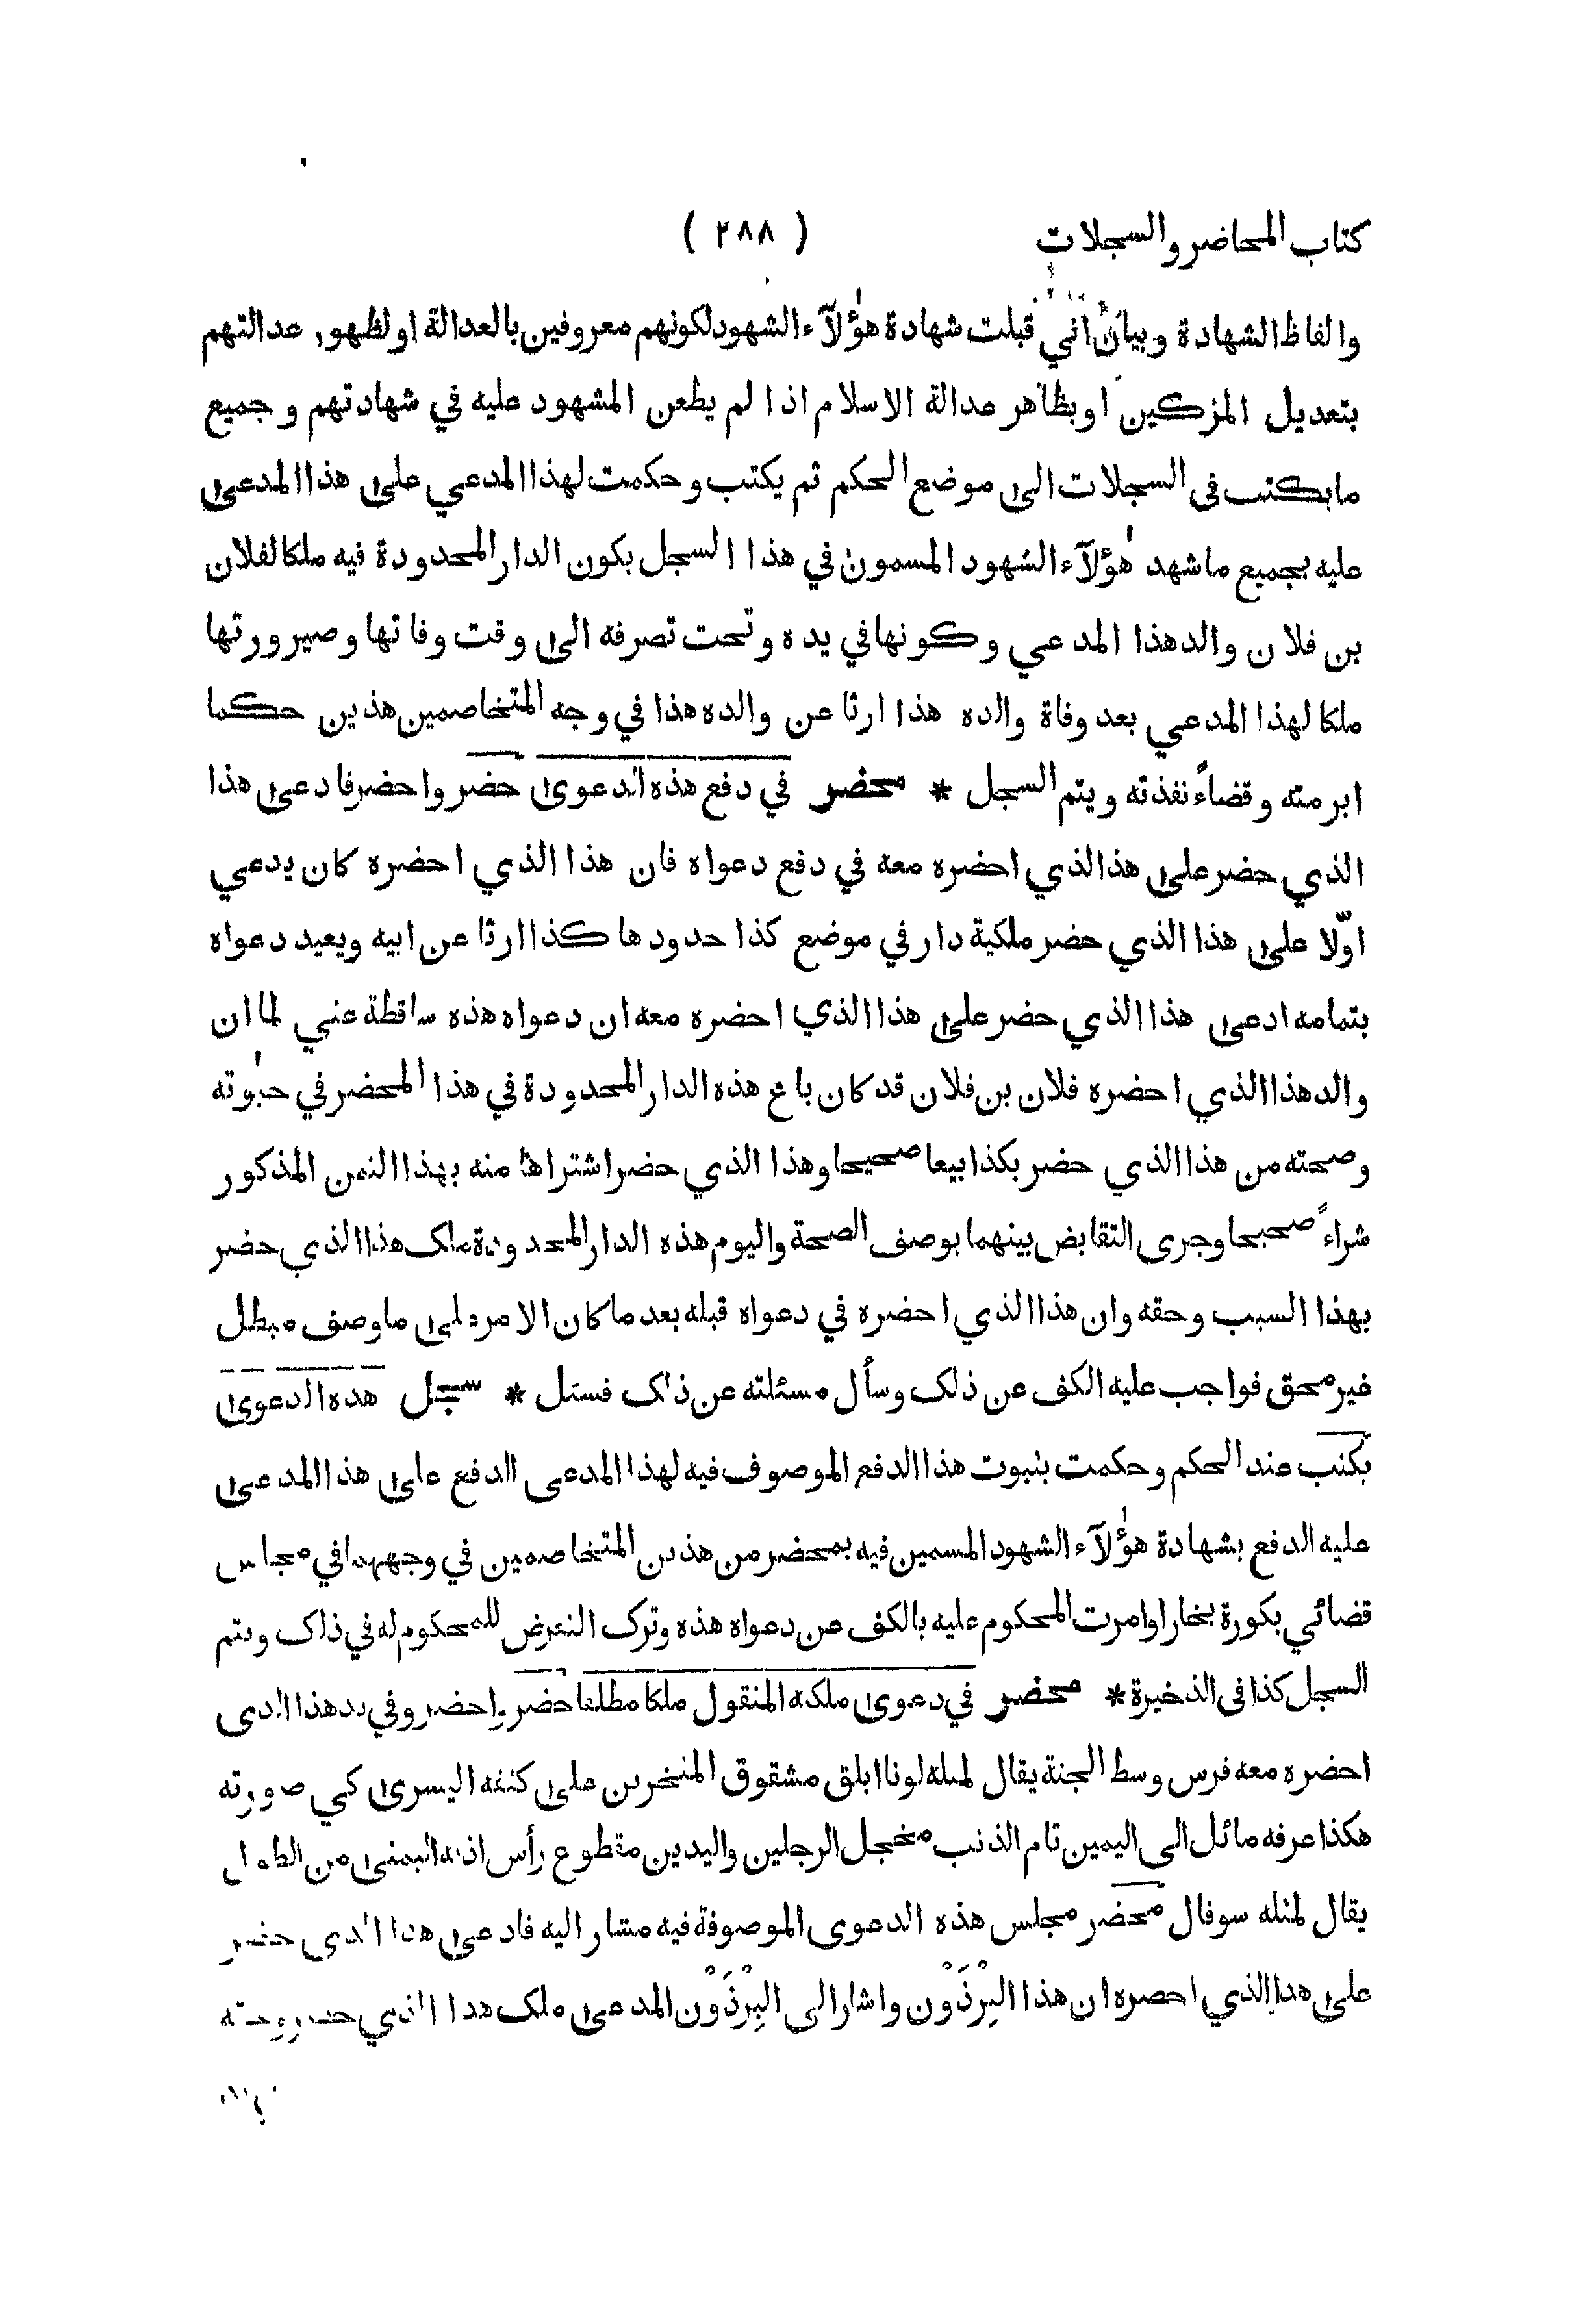 كتاب المحاضر والسجلات ( ٢٨٨ )
والفاظ الشهادة وبيان انني قبلت شهادة هؤلآء الشهود لكونهم معروفين بالعدالة او لظهور عدالتهم
بتعديل المزكين او بظاهر عدالة الاسلام اذا لم يطعن المشهود عليه في شهادتهم وجميع
ما يكتب فى السجلات الى موضع الحكم ثم يكتب وحكمت لهذا المدعي على هذا المدعى
عليه بجميع ما شهد هؤلآء الشهود المسمون في هذا السجل بكون الدار المحدودة فيه ملكا لفلان
بن فلان والد هذا المدعي وكونها في يده وتحت تصرفه الى وقت وفاتها وصيرورتها
ملكا لهذا المدعي بعد وفاة والده هذا ارثا عن والده هذا في وجه المتخاصمين هذين حكما
ابرمته وقضاءً نفذته ويتم السجل * محضر في دفع هذه الدعوى حضر واحضر فادعى هذا
الذي حضر على هذالذي احضره معه في دفع دعواه فان هذا الذي احضره كان يدعي
اوّلا على هذا الذي حضر ملكية دار في موضع كذا حدودها كذا ارثا عن ابيه ويعيد دعواه
بتمامه ادعى هذا الذي حضر على هذا الذي احضره معه ان دعواه هذه ساقطة عني لما ان
والد هذا الذي احضره فلان بن فلان قد كان باع هذه الدار المحدودة في هذا المحضر في حيوته
وصحته من هذا الذي حضر بكذا بيعا صحيحا وهذا الذي حضر اشتراها منه بهذا الثمن المذكور
شراءً صحيحا وجرى التقابض بينهما بوصف الصحة واليوم هذه الدار المحدودة ملك هذا الذي حضر
بهذا السبب وحقه وان هذا الذي احضره في دعواه قبله بعد ما كان الامر على ما وصف مبطل
غير محق فواجب عليه الكف عن ذلك وسأل مسئلته عن ذلك فسئل * سجل هذه الدعوى
يكتب عند الحكم وحكمت بثبوت هذا الدفع الموصوف فيه لهذا المدعى الدفع على هذا المدعى
عليه الدفع بشهادة هؤلآء الشهود المسمين فيه بمحضر من هذين المتخاصمين في وجههما في مجلس
قضائي بكورة بخارا وامرت المحكوم عليه بالكف عن دعواه هذه وترك التعرض للمحكوم له في ذلك ويتم
السجل كذا فى الذخيرة * محضر في دعوى ملكه المنقول ملكا مطلقا حضر واحضر وفي يد هذا الذى
احضره معه فرس وسط الجثة يقال لمثله لونا ابلق مشقوق المنخرين على كتفه اليسرى كي صورته
هكذا عرفه مائل الى اليمين تام الذنب محجل الرجلين واليدين مقطوع رأس اذنه اليمنى من الطول
يقال لمثله سوفال محضر مجلس هذه الدعوى الموصوفة فيه مشار اليه فادعى هذا الذى حضر
على هذا الذي احضره ان هذا البِرْذَوْن واشار الى البِرْذَوْن المدعى ملك هذا الذي حضر وحقه